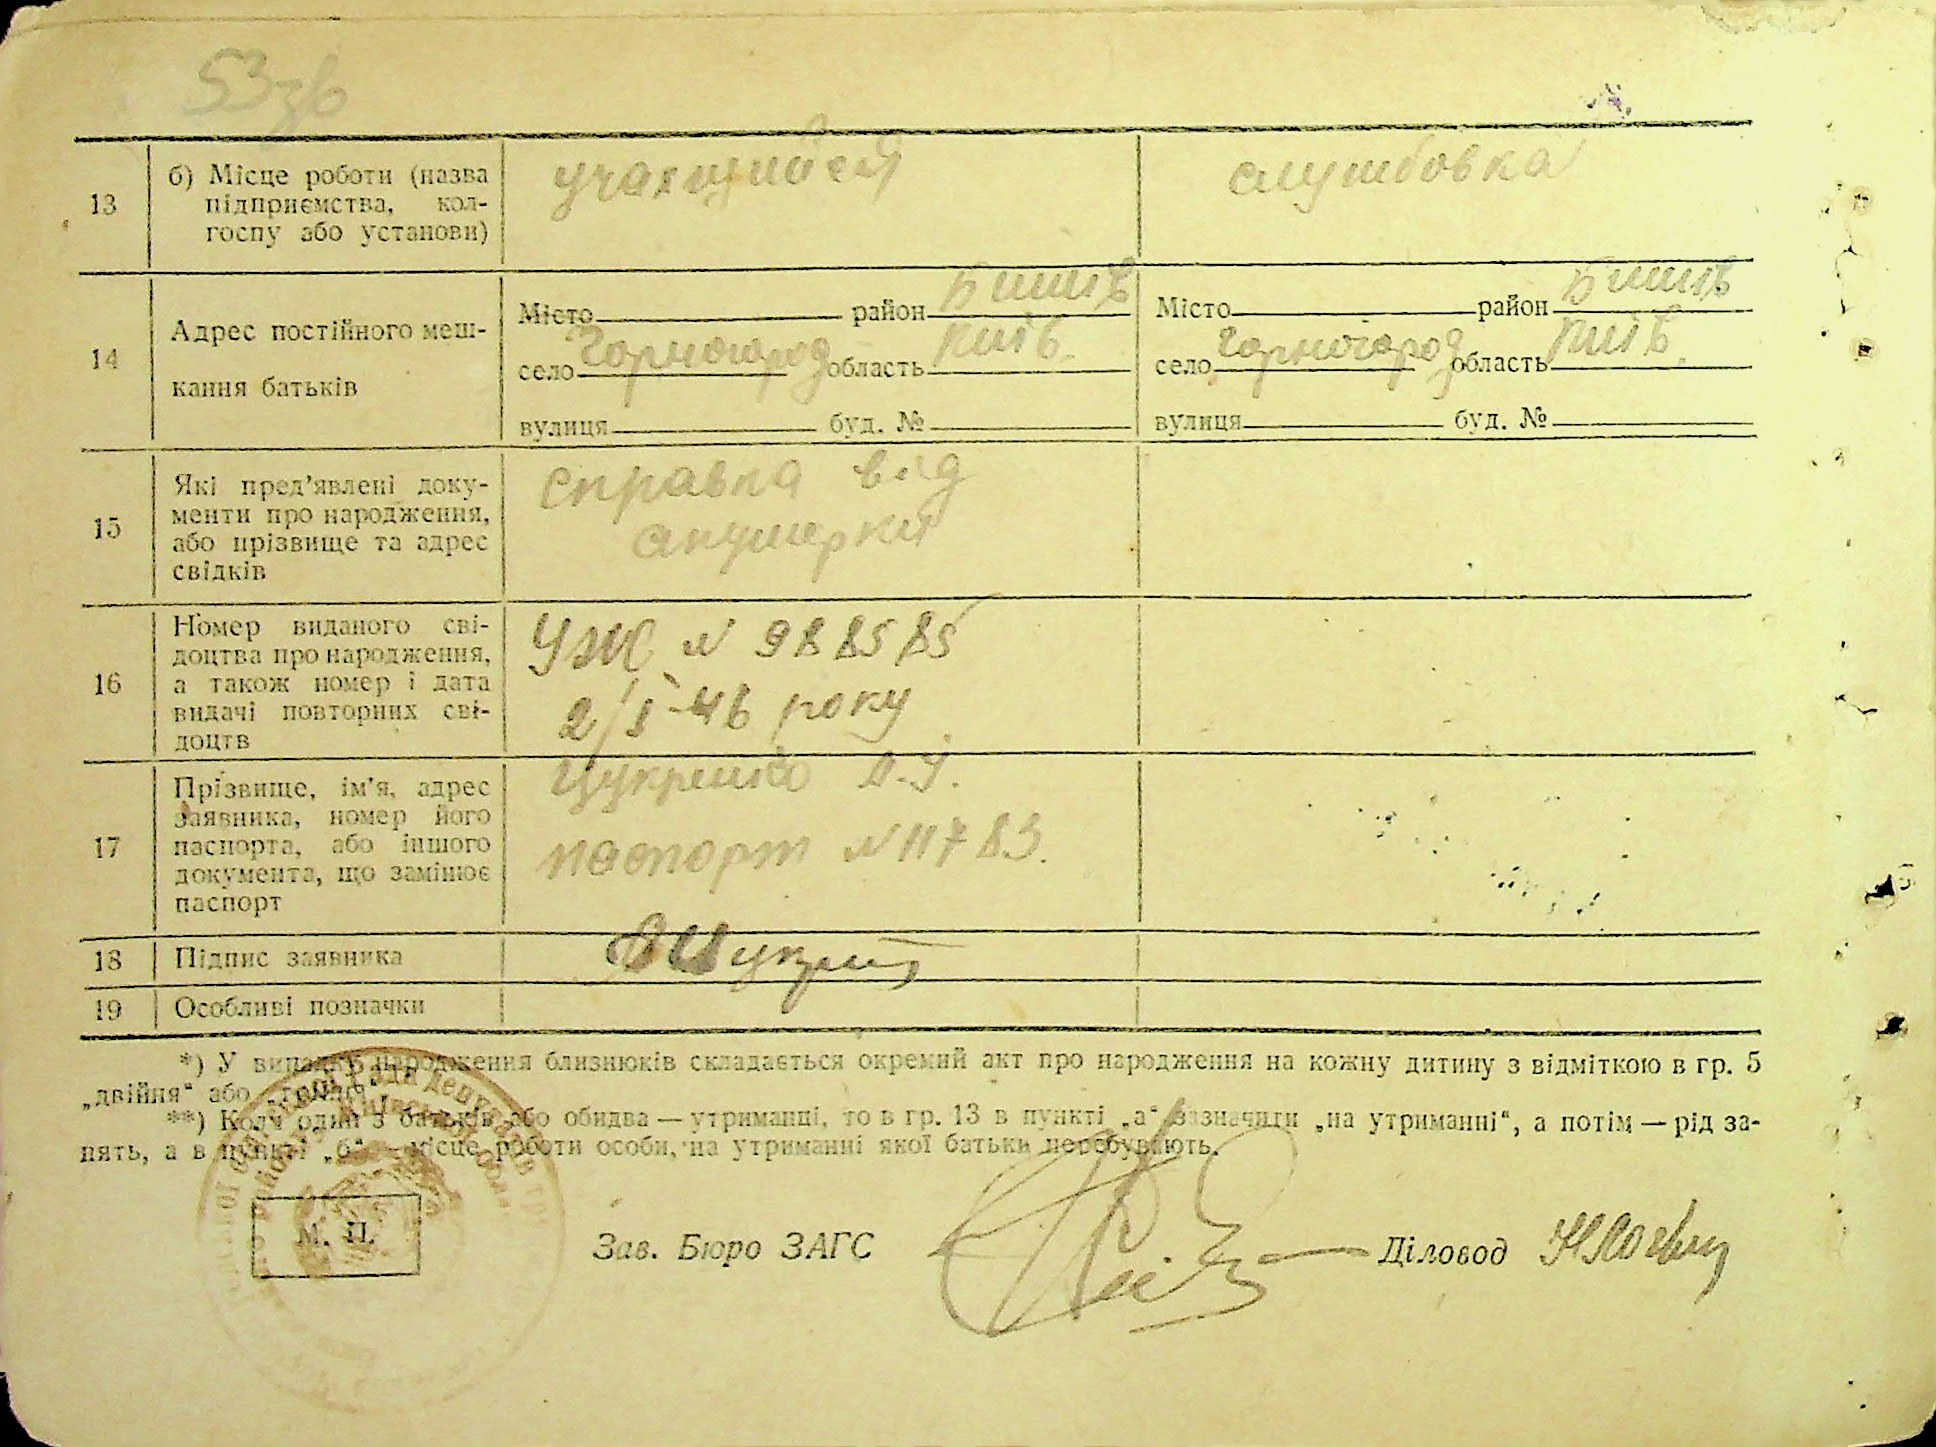 53зв
13
б) Місце роботи (назва
підприємства, кол-
госпу або установи)
учащийся
службовка
14
Адрес постійного меш-
кання батьків
Місто район Бишів
село Чорногород область Київ.
вулиця буд. №
Місто район Бишів
село Чорногород область Київ.
вулиця буд. №
15
Які пред’явлені доку-
менти про народження,
або прізвище та адрес
свідків
справка від
акушерки
16
Номер виданого сві-
доцтва про народження,
а також номер і дата
видачі повторних сві-
доцтв
УЖ № 988585
2/I-46 року
17
Прізвище, ім’я, адрес
заявника, номер його
паспорта, або іншого
документа, що замінює
паспорт
паспорт № 11783.
18
Підпис заявника
19
Особливі позначки
*) У випадку народження близнюків складається окремий акт про народження на кожну дитину з відміткою в гр. 5
„двійня“ або „трійня“.
**) Коли один з батьків або обидва — утриманці, то в гр. 13 в пункті „а“ зазначити „на утриманні“, а потім — рід за-
нять, а в пункті „б“ — місце роботи особи, на утриманні якої батьки перебувають.
М. П.
Зав. Бюро ЗАГС
Діловод